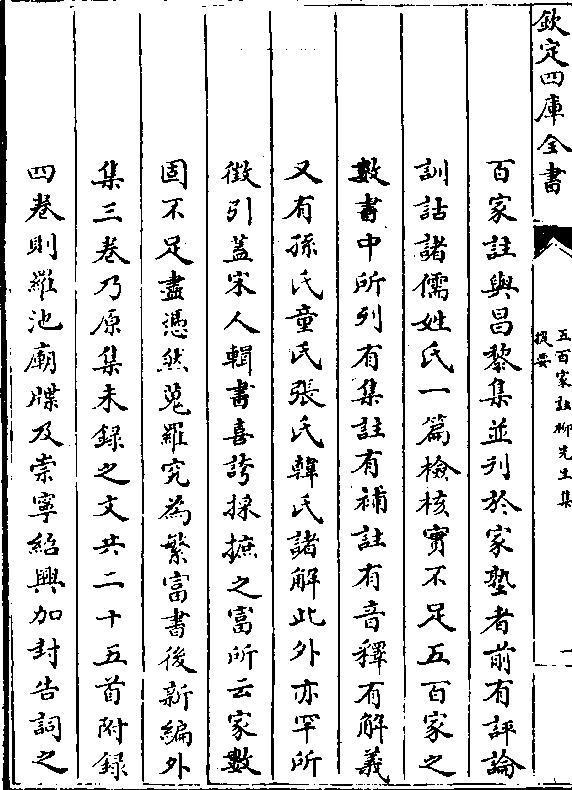 欽定四庫全書
五百家註柳先生集
提要
一
百家註與昌黎集並刋於家塾者前有評論
訓詁諸儒姓氏一篇檢核實不足五百家之
數書中所列有集註有補註有音釋有解義
又有孫氏童氏張氏韓氏諸解此外亦罕所
徴引葢宋人輯書喜誇採摭之富所云家數
固不足盡憑然蒐羅究為繁富書後新編外
集三卷乃原集未録之文共二十五首附録
四卷則羅池廟牒及崇寧紹興加封告詞之